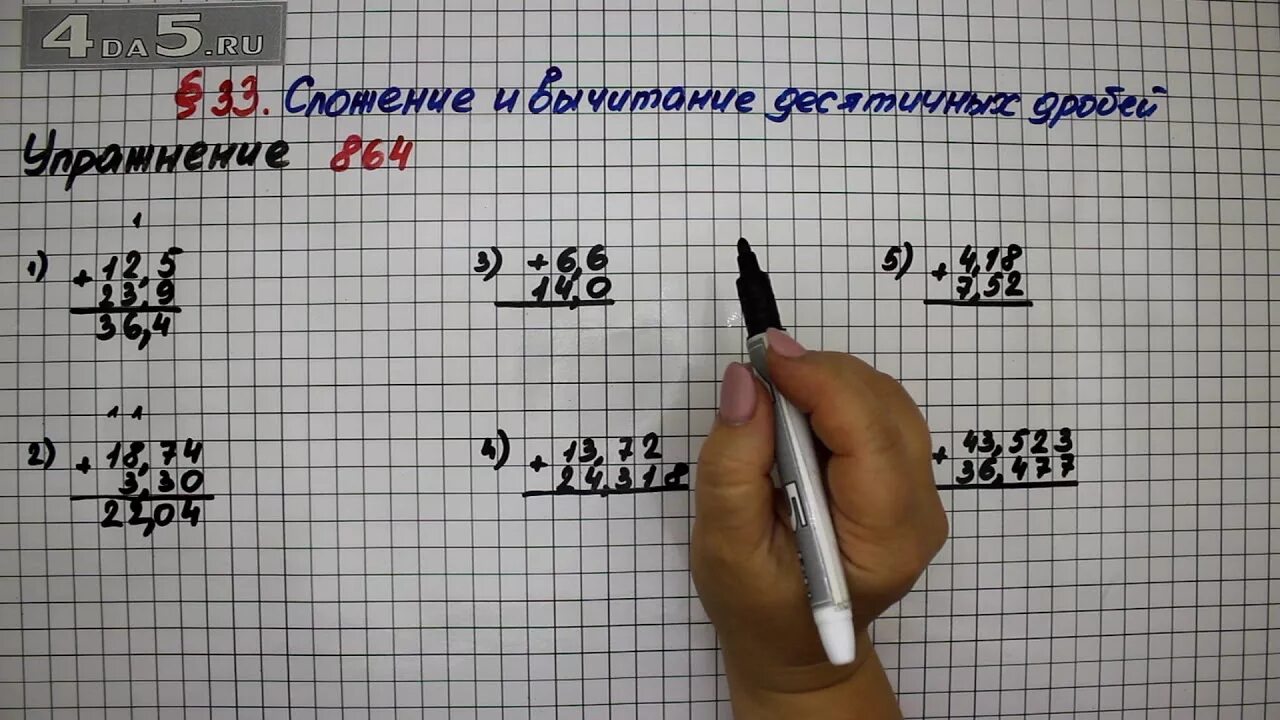 4DA5.RU
§ 33. Сложение и вычитание десятичных дробей
Упражнение 864
1
1) + 12,5
23,9
36,4
1 1
2) + 18,74
3,30
22,04
3) + 6,6
14,0
4) + 13,72
24,318
5) + 4,18
7,52
+ 43,523
36,477